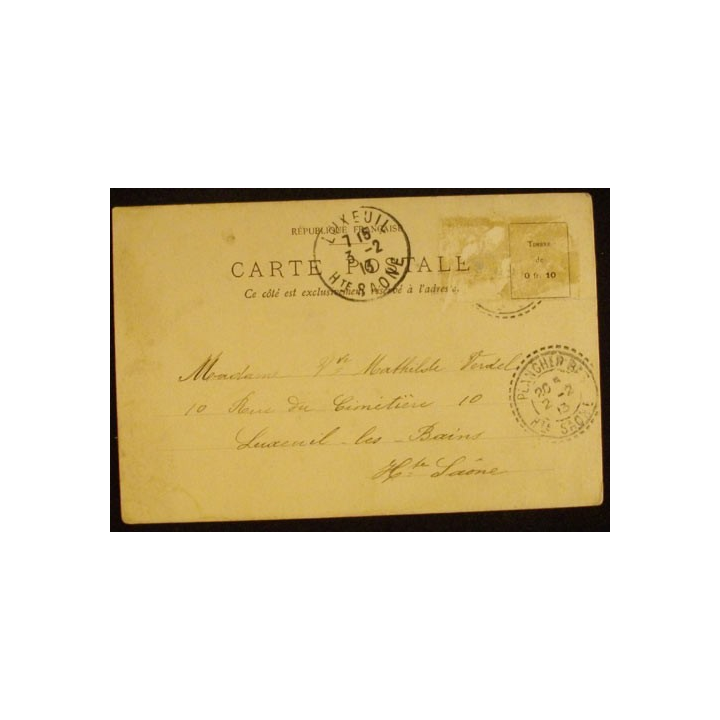 RÉPUBLIQUE FRANÇAISE
CARTE POSTALE
Ce côté est exclusivement réservé à l'adresse.
Timbre
de
0 fr. 10
LUXEUIL
7 15
3 -2
13
HTE SAONE
PLANCHER BAS
20
2 -2
13
HTE SAONE
Madame Vve Mathilde Verdel
10 Rue du Cimetière 10
Luxeuil-les-Bains
Hte Saône